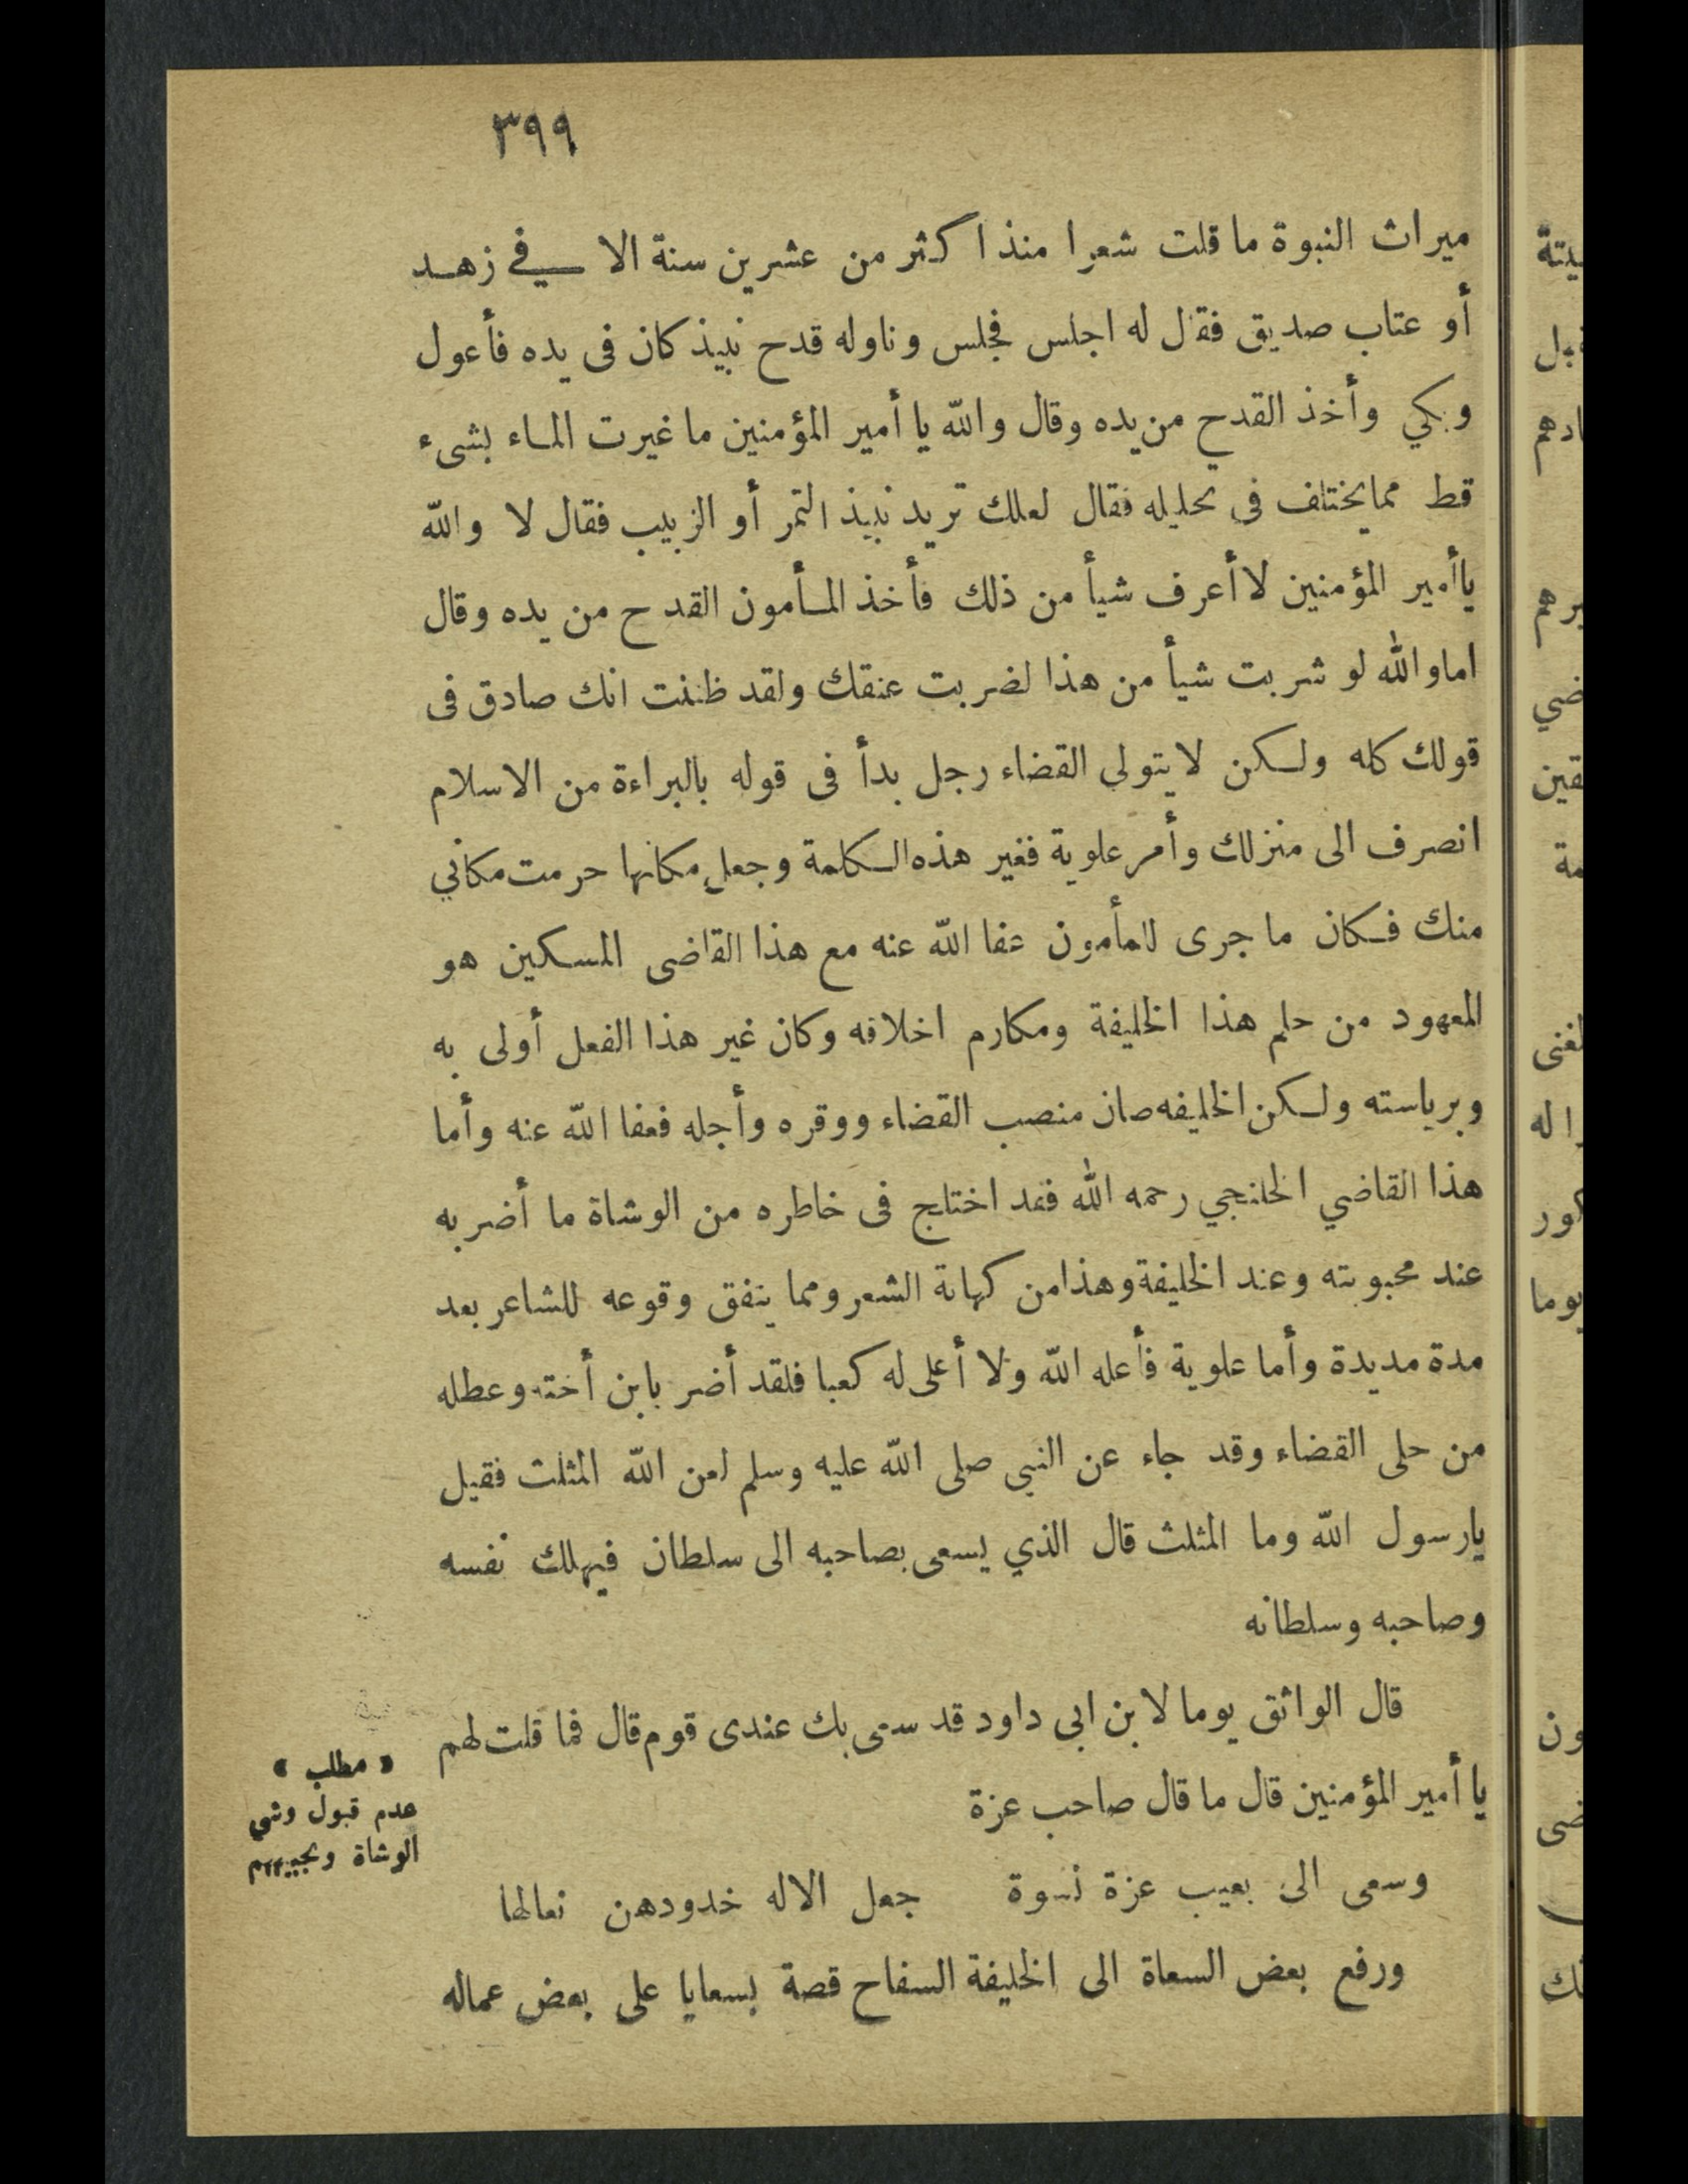 ٣٩٩
ميراث النبوة ما قلت شعرا منذ اكثر من عشرين سنة الا في زهد
أو عتاب صديق فقال له اجلس فجلس وناوله قدح نبيذ كان فى يده فأعول
وبكي وأخذ القدح من يده وقال والله يا أمير المؤمنين ما غيرت الماء بشىء
قط مما يختلف فى تحليله فقال لعلك تريد نبيذ التمر أو الزبيب فقال لا والله
يا أمير المؤمنين لا أعرف شيأ من ذلك فأخذ المأمون القدح من يده وقال
اما والله لو شربت شيأ من هذا لضربت عنقك ولقد ظننت انك صادق فى
قولك كله ولكن لا يتولى القضاء رجل بدأ فى قوله بالبراءة من الاسلام
انصرف الى منزلك وأمر علوية فغير هذه الكلمة وجعل مكانها حرمت مكاني
منك فكان ما جرى للمأمون عفا الله عنه مع هذا القاضى المسكين هو
المعهود من حلم هذا الخليفة ومكارم اخلاقه وكان غير هذا الفعل أولى به
وبرياسته ولكن الخليفه صان منصب القضاء ووقره وأجله فعفا الله عنه وأما
هذا القاضي الخلنجي رحمه الله فقد اختلج فى خاطره من الوشاة ما أضر به
عند محبوبته وعند الخليفة وهذا من كهانة الشعر ومما يتفق وقوعه للشاعر بعد
مدة مديدة وأما علوية فأعله الله ولا أعلى له كعبا فلقد أضر بابن أخته وعطله
من حلى القضاء وقد جاء عن النبى صلى الله عليه وسلم لعن الله المثلث فقيل
يارسول الله وما المثلث قال الذي يسعى بصاحبه الى سلطان فيهلك نفسه
وصاحبه وسلطانه
قال الواثق يوما لابن ابى داود قد سعى بك عندى قوم قال فما قلت لهم
يا أمير المؤمنين قال ما قال صاحب عزة
وسعى الى بعيب عزة نسوة جعل الاله خدودهن نعالها
ورفع بعض السعاة الى الخليفة السفاح قصة بسعايا على بعض عماله
« مطلب »
عدم قبول وشي
الوشاة